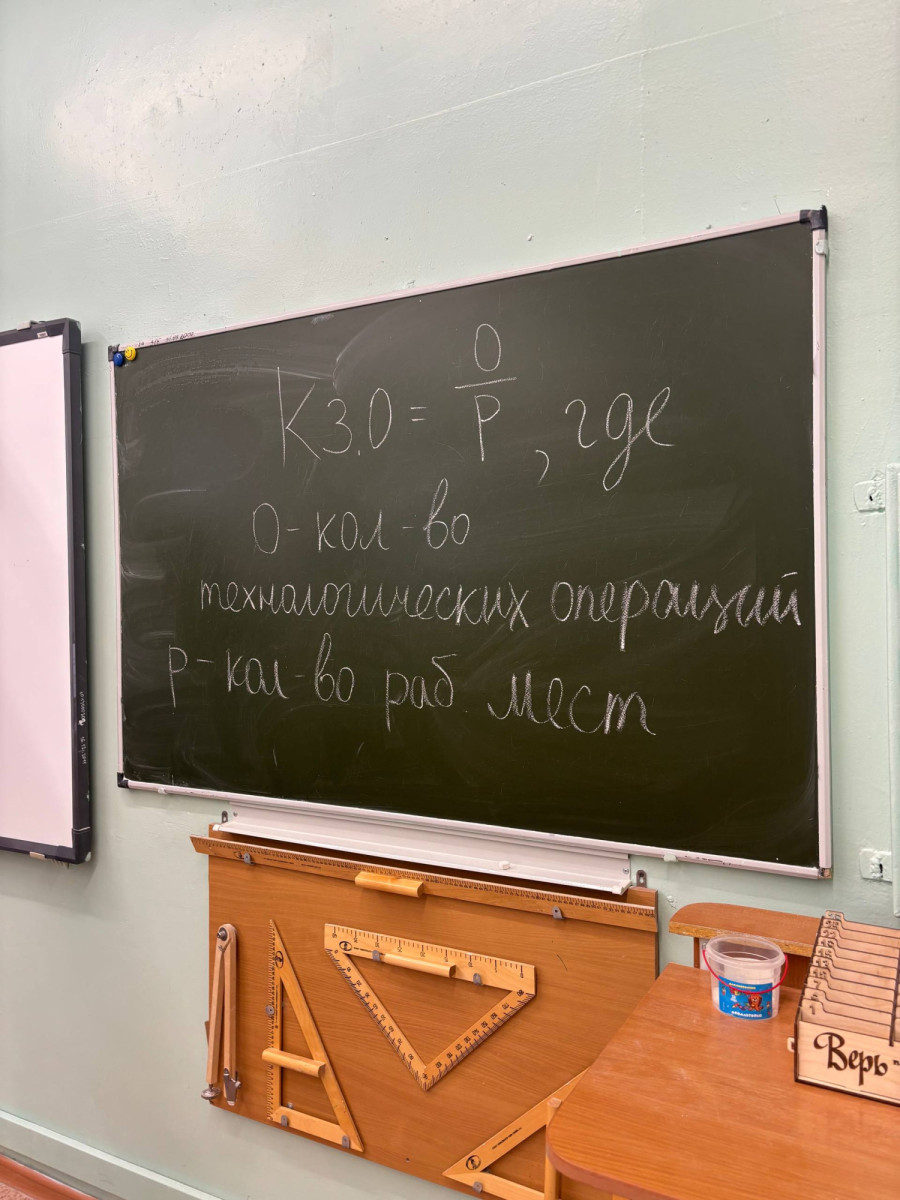 Kз.О = О/Р , где
О - кол-во
технологических операций
Р - кол-во раб. мест
Верь